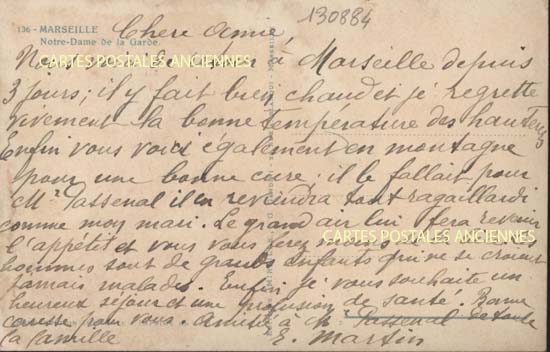 130884
136 - MARSEILLE
Notre-Dame de la Garde.
Chère Amie,
Nous à Marseille depuis
3 jours; il y fait bien chaud et je regrette
vivement la bonne température des hauteurs
Enfin vous voici également en montagne
pour une bonne cure; il le fallait pour
Mr Passenal il en reviendra tout ragaillardi
comme mon mari. Le grand air lui fera revenir
l'appétit et vous vous
hommes sont de grands enfants qui ne se croient
jamais malades. Enfin je vous souhaite un
heureux séjour et une profusion de santé. Bonne
caresse pour vous. Amitiés à Mr Passenal de toute
la famille
E. Martin
CARTES POSTALES ANCIENNES
CARTES POSTALES ANCIENNES